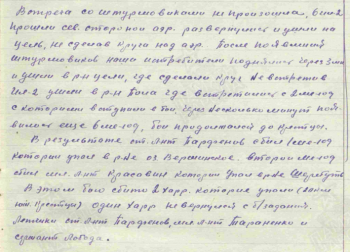 Встреча со штурмовиками не произошла, Ил-2
прошли сев. стороной аэр. развернулись и ушли на
цель, не сделав круга над аэр. После появления
штурмовиков наши истребители поднялись через 3 мин
и ушли в р-н цели, где сделали круг не встретив
Ил-2 ушли в р-н где встретились с 2 ме-109
с которыми вступили в бой, через несколько минут поя-
вились еще 6 ме-109, бой продолжался до
В результате ст. л-нт Парфенов сбил 1 ме-109
который упал в р-не Вершинское. второй ме-109
сбил мл. л-нт Красавин который упал в р-не
В этом бою сбито 2 Харр. которые упали
один Харр не вернулся с б/задания.
Летчики ст. л-нт Парфенов, мл. л-нт Тараненко и
сержант Лобода.